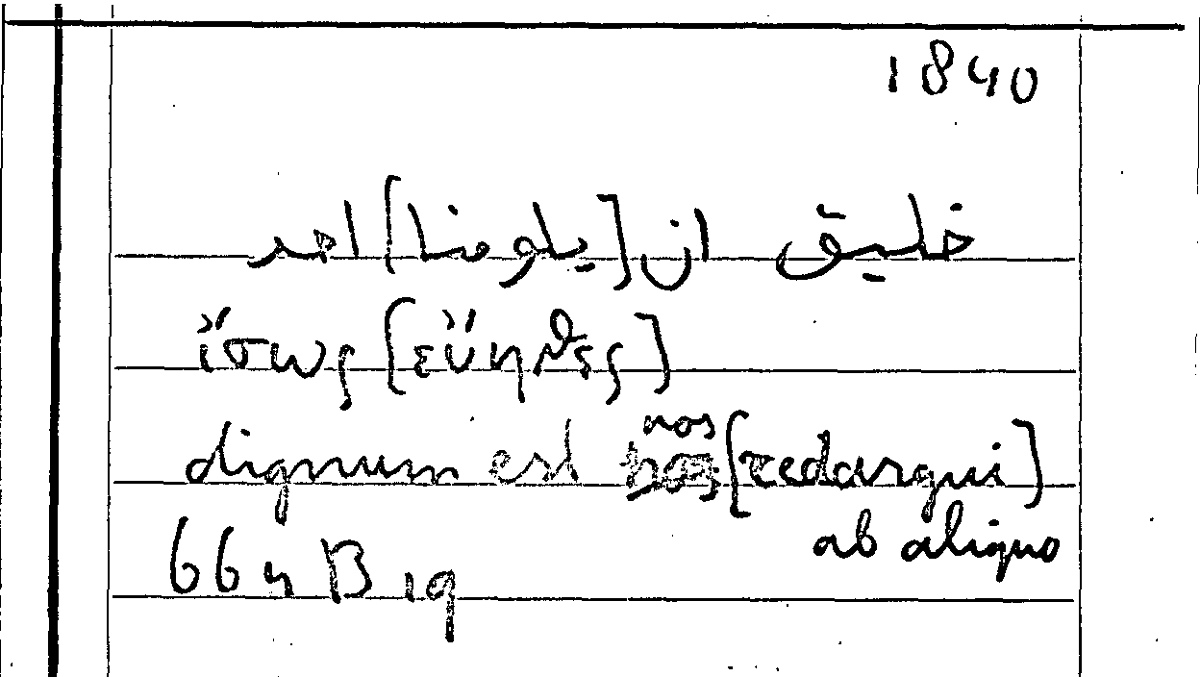 1840
خليق ان [يلومنا] احد
ἴσως [εὔηθες]
dignum est nos [redargui]
ab aliquo
664 B 19